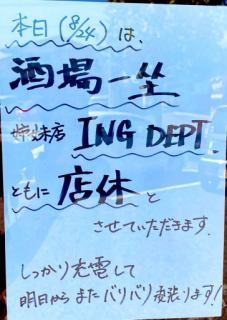 本日(8/24)は、
酒場一坐
姉妹店 ING DEPT.
ともに 店休 と
させていただきます.
しっかり充電して
明日から またバリバリ頑張ります!